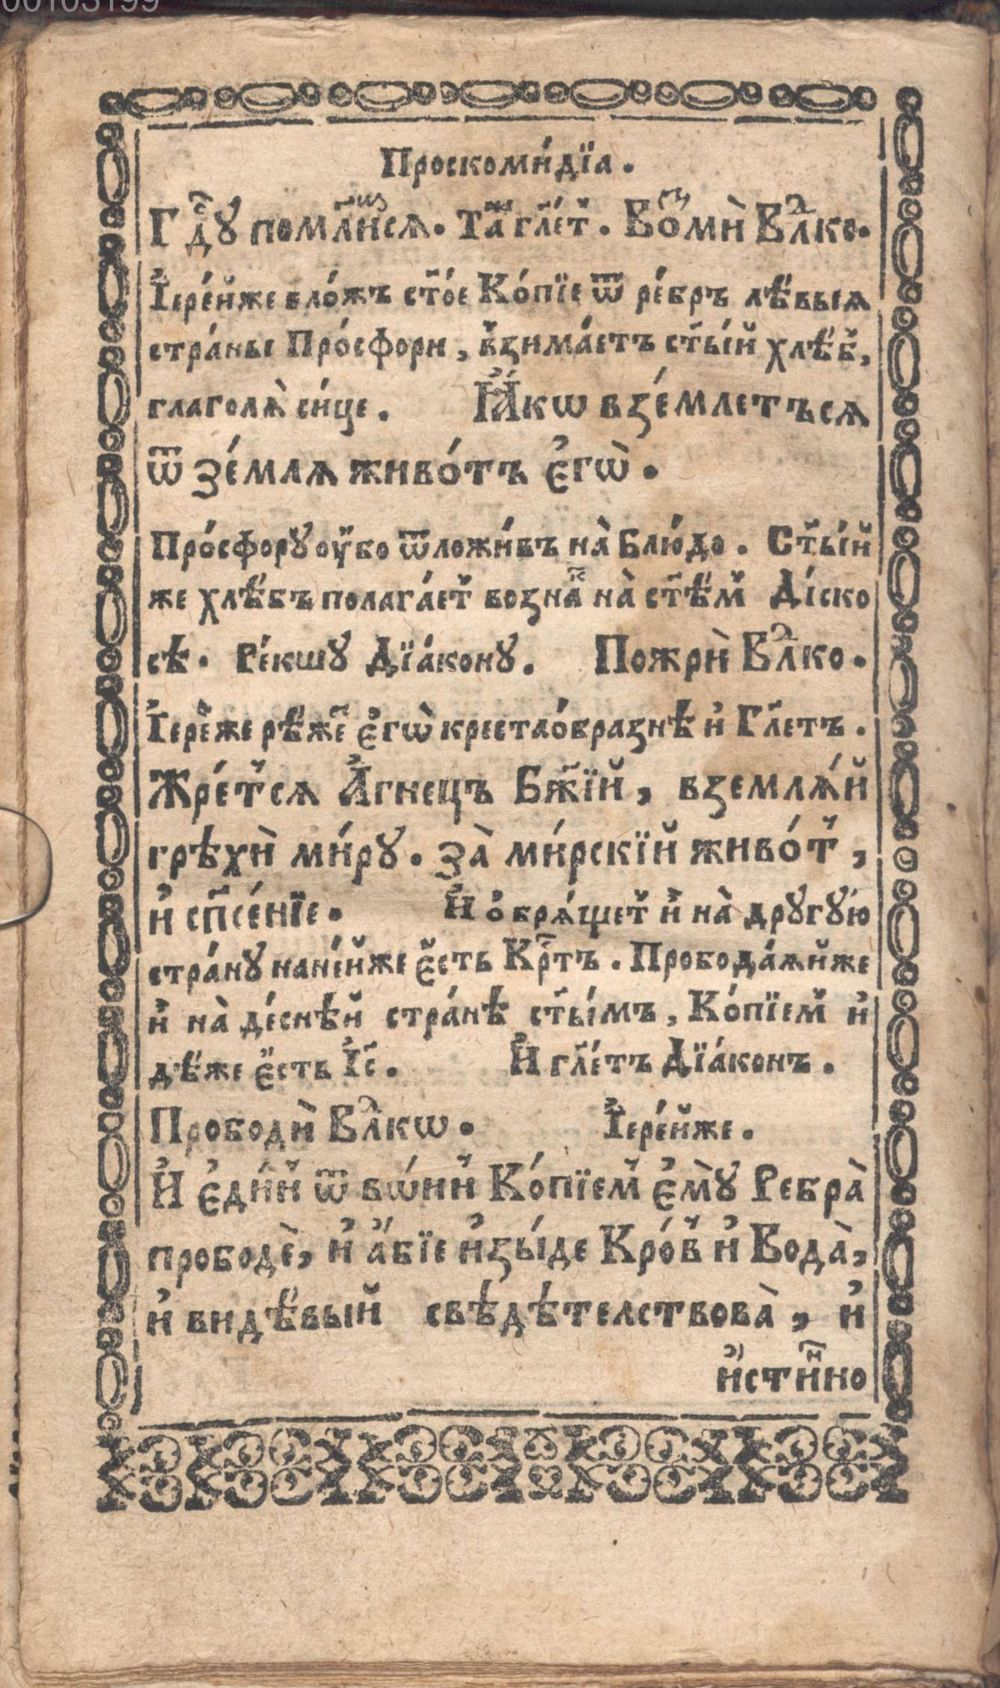 00103199
Проскоми́дїа.
Гд҇ꙋ помл҃и́сѧ. Та̑ гл҃е́т̾. Воз̾мѝ Вл҃ко.
І҆ере́йже вло́жъ ст҃о́е Ко́пїе ѿ ре́бръ лѣ́выѧ
стра́ны Про́сфори, в̾зима́етъ ст҃ы́й хлѣ́б̾,
глаголѧ̀ си́це. Ꙗ҆́кѡ взе́млетъсѧ
ѿ зе́млѧ живо́тъ є҆гѡ̀.
Про́сфорꙋ оу҆́бо ѿложи́въ на̀ Блю́до. Ст҃ы́й
же хлѣ́бъ полага́ет̾ возна̑к на̀ ст҃ѣ́м̾ Ді́ско
сѣ. Ре́кшꙋ Дїа́конꙋ. Пожрѝ Вл҃ко.
І҆ере́йже рѣ́же є҆гѡ̀ крестаѻ́бразнѣ и҆ Гл҃етъ.
Жре́т̾сѧ А҆́гнецъ Бж҃їй, вземлѧ́й
грѣхѝ ми́рꙋ. за̀ ми́рскїй живо́т̾,
и҆ сп҃се́нїе. И҆ ѻ҆брѧ́щет̾ и҆̀ на̀ дрꙋгꙋ́ю
стра́нꙋ нане́йже є҆́сть Кр҇тъ. Прободаѧ́йже
и҆̀ на̀ де́снѣй стра́нѣ ст҃ы́мъ, Ко́пїем̾ и҆
дѣ́же є҆́сть І҆с҃. И҆ гл҃е́тъ Дїа́конъ.
Прободѝ Вл҃кѡ. І҆ере́йже.
И҆ є҆ди́н̾ ѿ во́ин̾ Ко́пїем̾ є҆мꙋ̀ Ребра̀
прободѐ, и҆ а҆́бїе и҆зы́де Кро́в̾ и҆ Вода̀,
и҆ видѣ́вый свѣдѣ́телствова̀, и҆
и҆́сти́нно